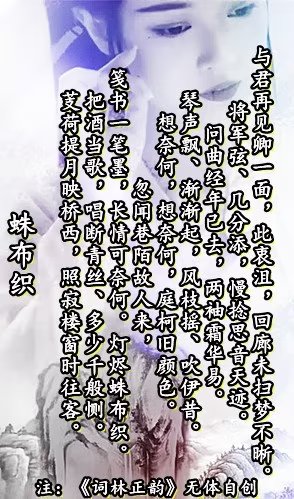 与君再见卿一面，此衷沮，回廊未扫梦不晰。
将军弦、几分添，慢捻思音天迹。
问曲经年已去，两袖霜华易。
琴声飘、渐渐起，风枝摇、吹伊昔。
想奈何，想奈何，庭柯旧颜色。
忽闻巷陌故人来，
笺书一笔墨，长情可奈何。灯烬蛛布织。
把酒当歌，唱断青丝、多少千般恻。
芰荷提月映桥西，照寂楼窗时往客。
蛛布织
注：《词林正韵》无体自创